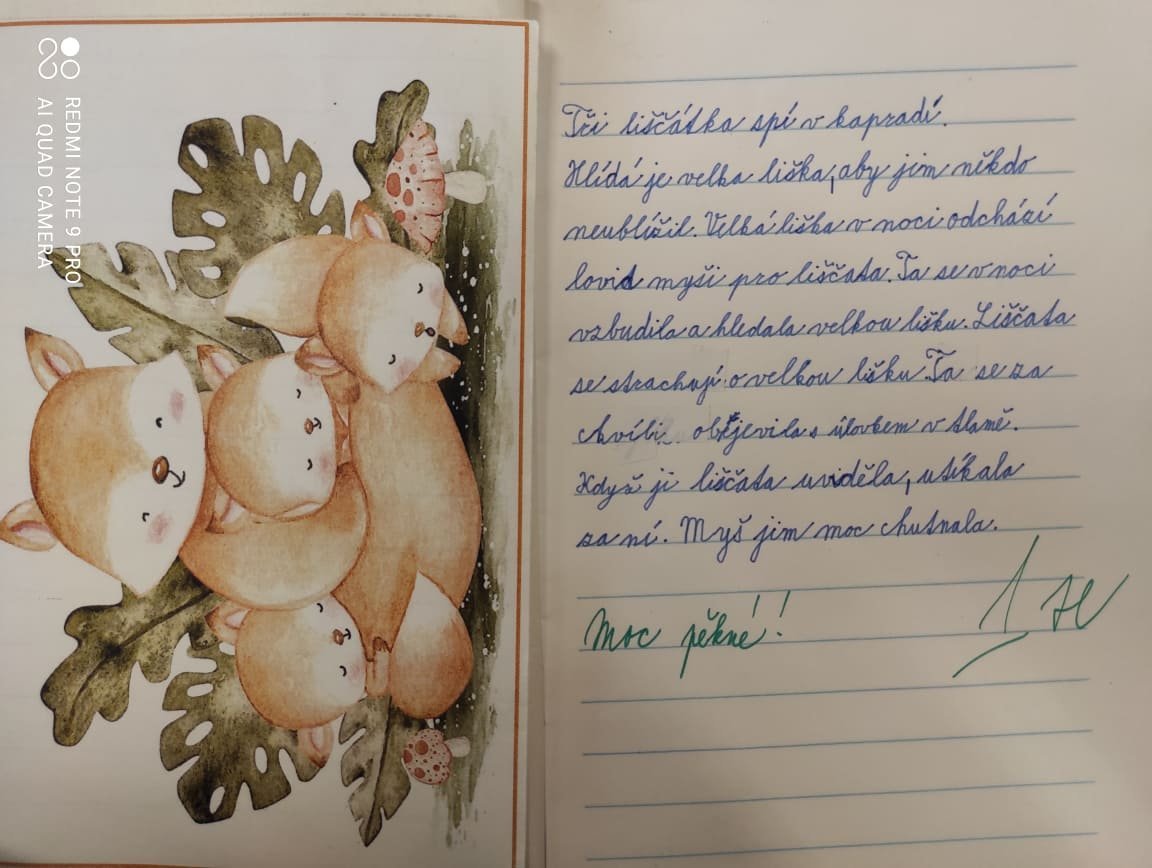 REDMI NOTE 9 PRO
AI QUAD CAMERA
Tři liščátka spí v kapradí.
Hlídá je velka liška, aby jim někdo
neublížil. Velká liška v noci odchází
lovit myši pro liščata. Ta se v noci
vzbudila a hledala velkou lišku. Liščata
se strachují o velkou lišku. Ta se za
chvíli objevila s úlovkem v tlamě.
Když ji liščata uviděla, utíkala
za ní. Myš jim moc chutnala.
Moc pěkné!
1